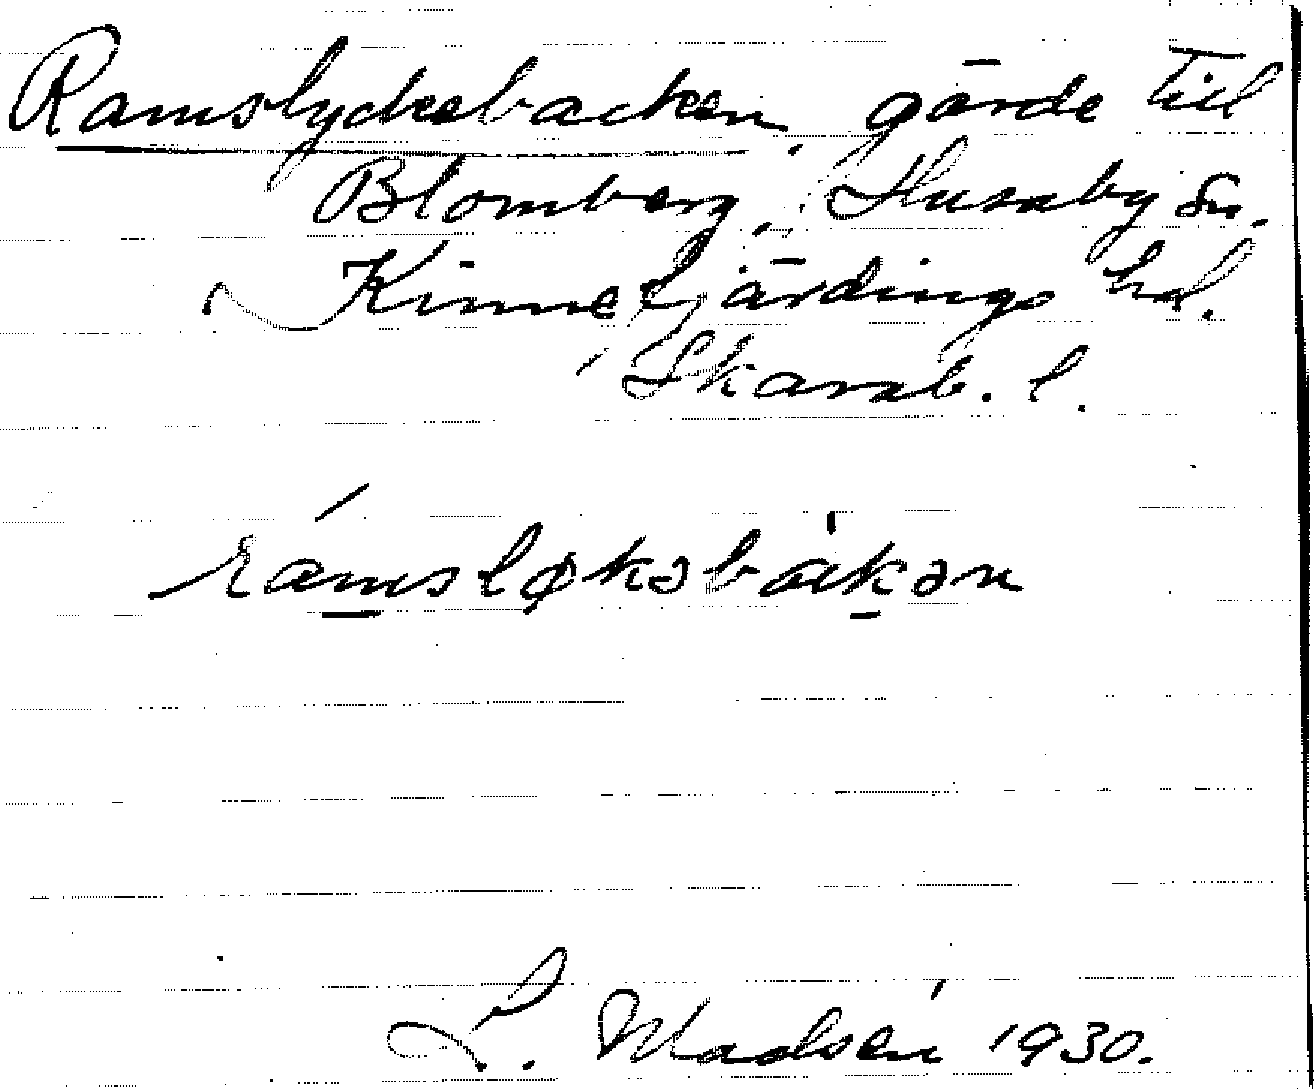 Ramslyckebacken, gärde till
Blomberg, Husaby sn.
Kinnefjärdings hd.
Skarab. l.
ramsløkəbakən
L. Madsén 1930.